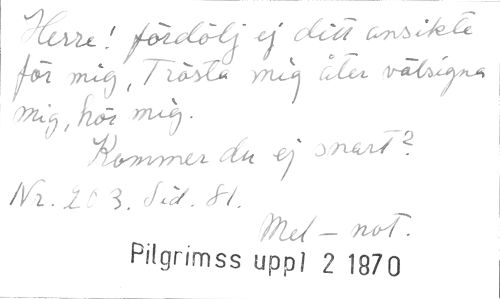 Herre! fördölj ej ditt ansikte
för mig, Trösta mig åter välsigna
mig, hör mig.
Kommer du ej snart?
Nr. 203. Sid. 81.
Mel – not.
Pilgrimss uppl 2 1870